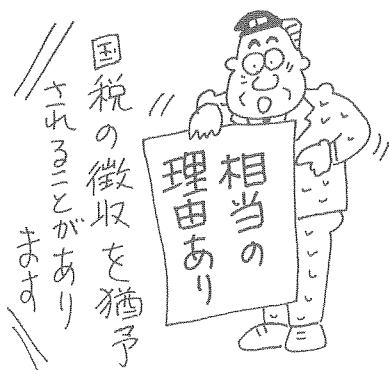 相当の
理由あり
国税の徴収を猶予
されることがあり
ます